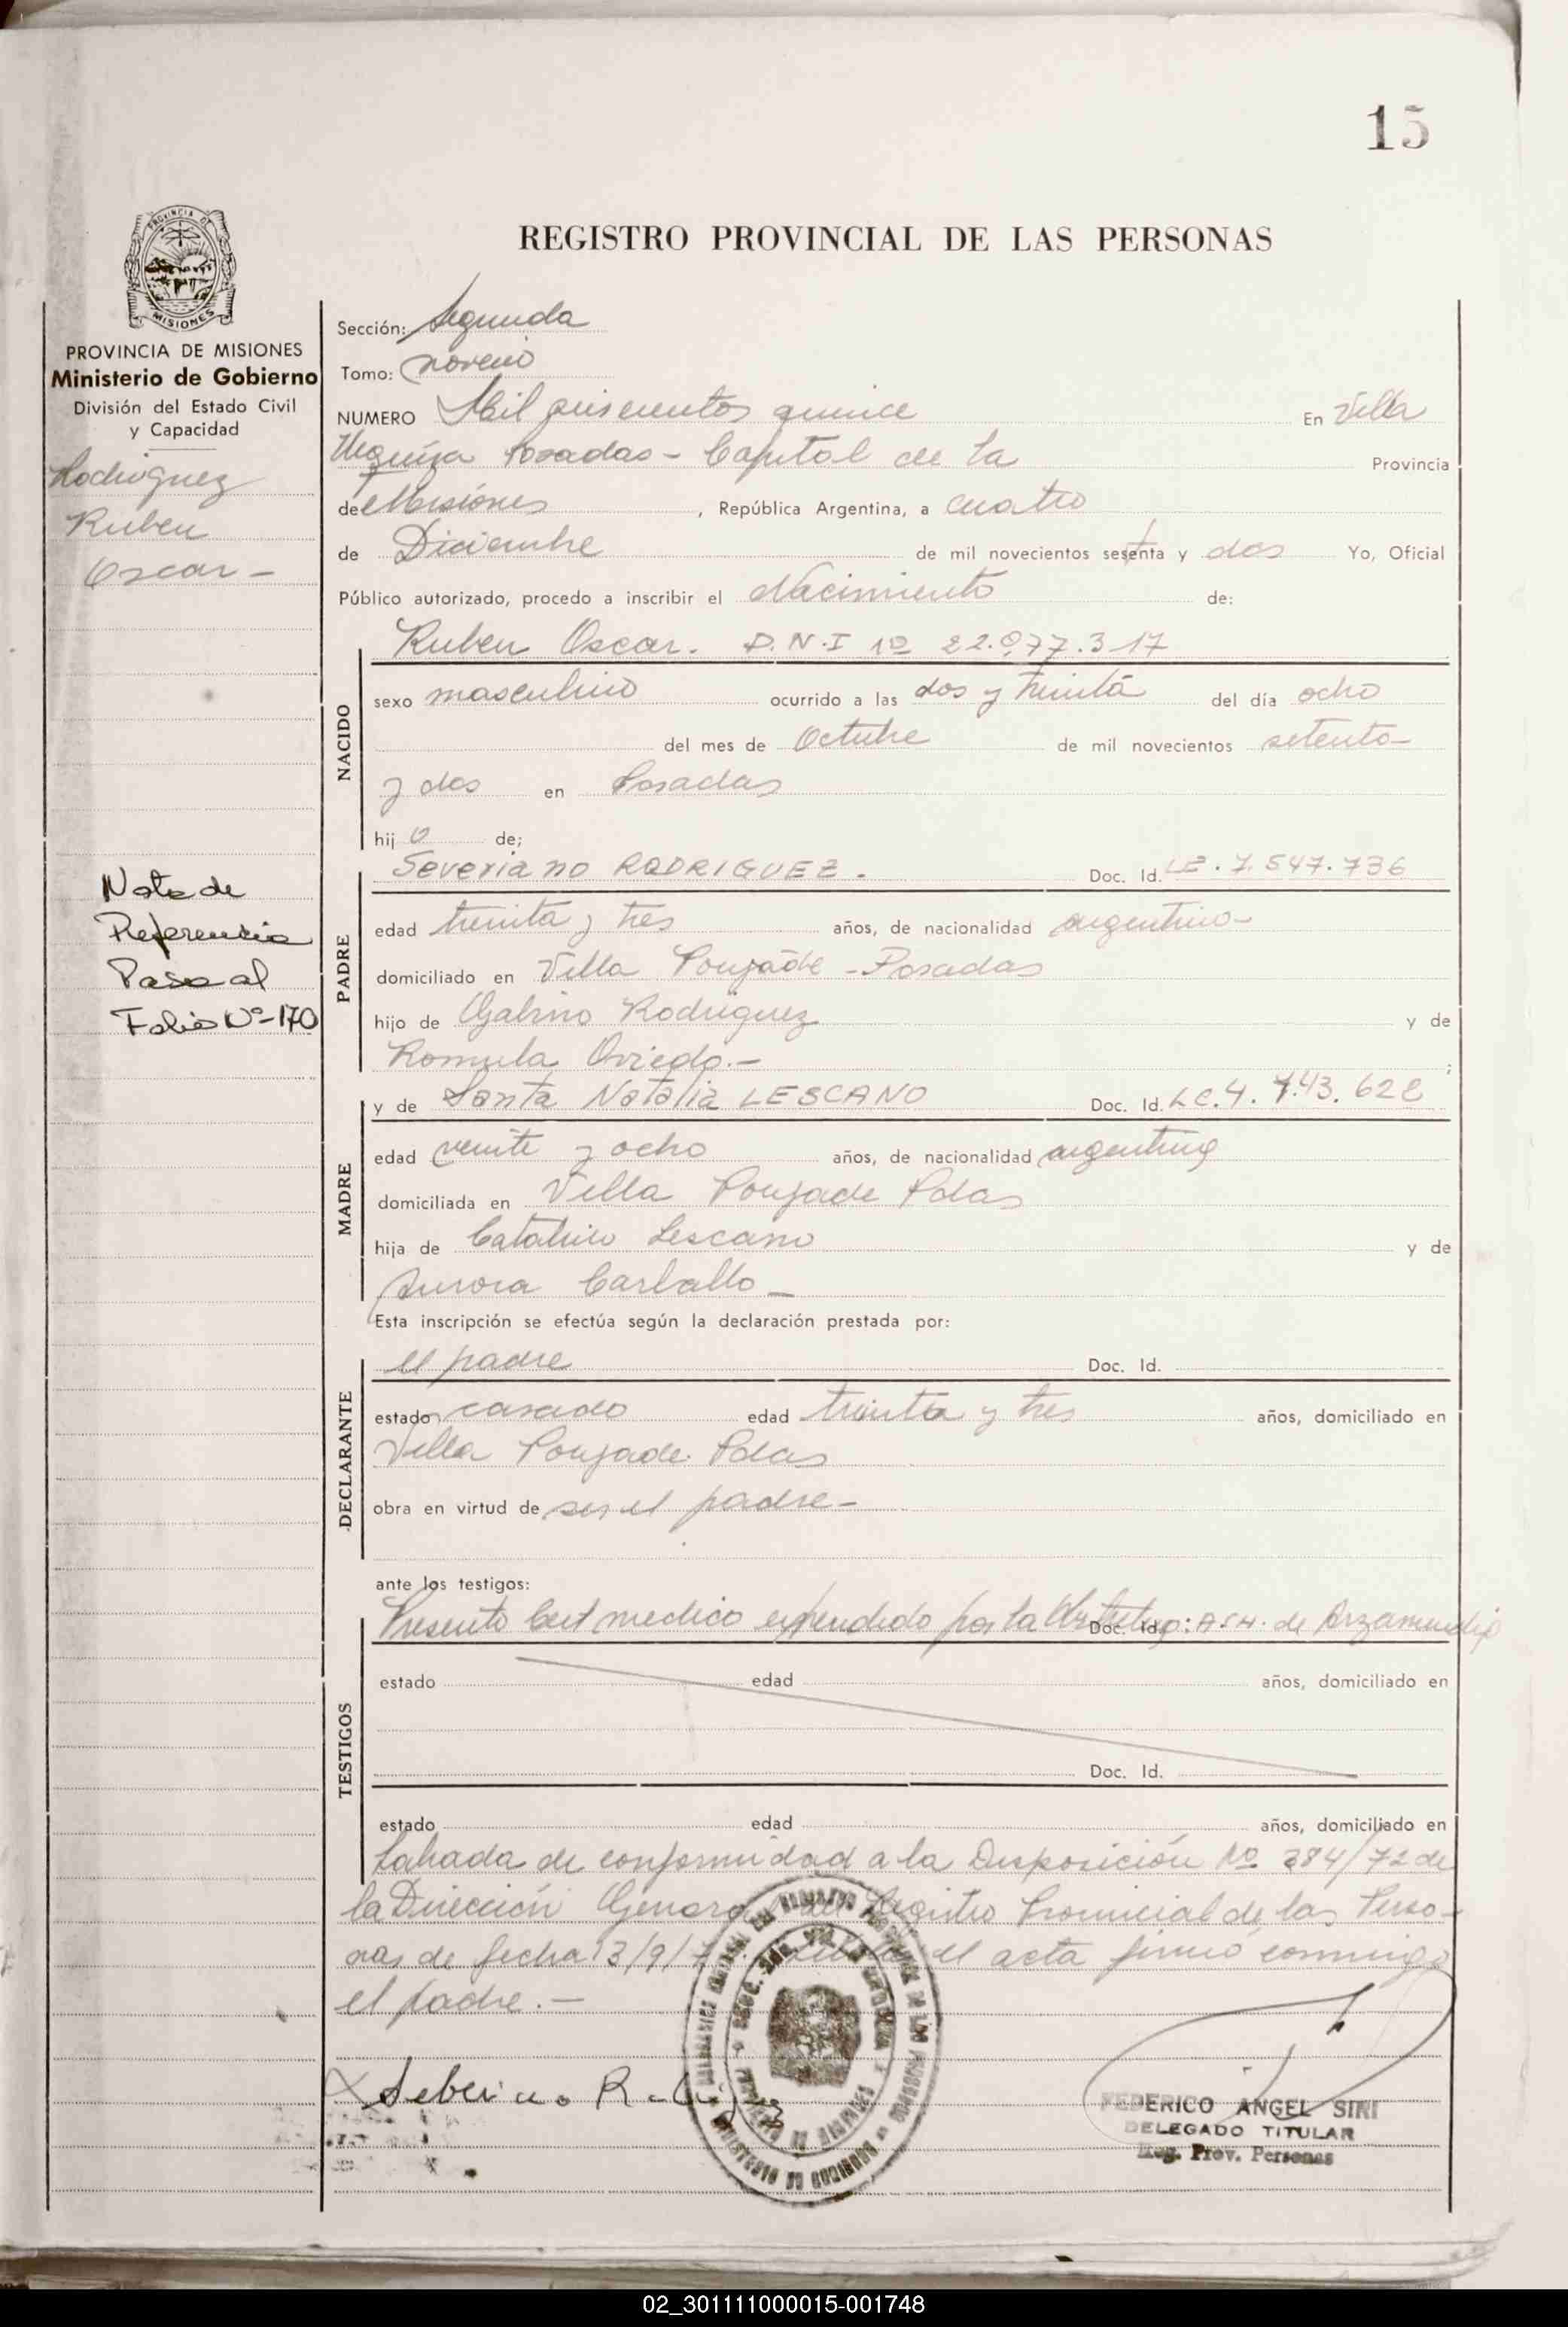 15
REGISTRO PROVINCIAL DE LAS PERSONAS
PROVINCIA DE MISIONES
Ministerio de Gobierno
División del Estado Civil
y Capacidad
Rodriguez
Ruben
Oscar -
Nota de
Referencia
Pasa al
Folio Nº-170
Sección: Segunda
Tomo: noveno
NUMERO Mil seiscientos quince En Villa
Urquiza Posadas - Capital de la Provincia
de Misiones, República Argentina, a cuatro
de Diciembre de mil novecientos sesenta y dos Yo, Oficial
Público autorizado, procedo a inscribir el Nacimiento de:
Ruben Oscar. D.N.I nº 22.077.317
NACIDO
sexo masculino ocurrido a las dos y treinta del día ocho
del mes de Octubre de mil novecientos setenta
y dos en Posadas
hijo de;
Severiano RODRIGUEZ. Doc. Id. LE. 7.547.736
PADRE
edad treinta y tres años, de nacionalidad argentino-
domiciliado en Villa Poujade - Posadas
hijo de Gabino Rodriguez y de
Romula Oviedo.- ;
y de Santa Natalia LESCANO Doc. Id. LC. 4.743.628
MADRE
edad veinte y ocho años, de nacionalidad argentina
domiciliada en Villa Poujade Pdas
hija de Catalino Lescano y de
Aurora Carballo -
Esta inscripción se efectúa según la declaración prestada por:
el padre Doc. Id.
DECLARANTE
estado casado edad treinta y tres años, domiciliado en
Villa Poujade. Pdas
obra en virtud de ser el padre-
ante los testigos:
Presento Cert medico expendido por la Obstetra: A.S.H. de Arzamendia Doc. Id.
TESTIGOS
estado edad años, domiciliado en
Doc. Id.
estado edad años, domiciliado en
Labrada de conformidad a la Disposición Nº 384/72 de
la Dirección General del Registro Provincial de las Perso-
nas de fecha 13/9/7 el acta firmó conmigo
el padre.-
Seberiano
FEDERICO ANGEL SINI
DELEGADO TITULAR
Reg. Prov. Personas
02_301111000015-001748